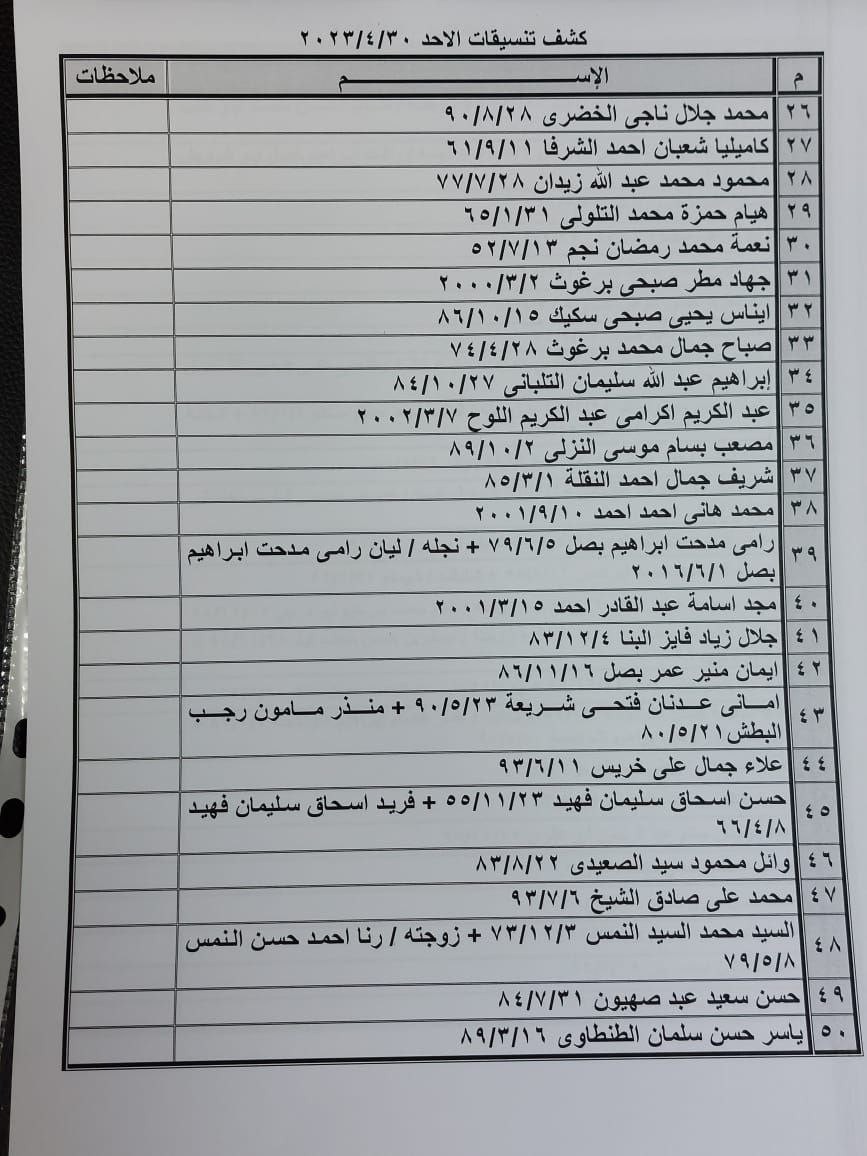 كشف تنسيقات الاحد ٢٠٢٣/٤/٣٠
م الإســـــــــم ملاحظات
٢٦ محمد جلال ناجى الخضرى ٩٠/٨/٢٨
٢٧ كاميليا شعبان احمد الشرفا ٦١/٩/١١
٢٨ محمود محمد عبد الله زيدان ٧٧/٧/٢٨
٢٩ هيام حمزة محمد التلولى ٦٥/١/٣١
٣٠ نعمة محمد رمضان نجم ٥٢/٧/١٣
٣١ جهاد مطر صبحى برغوث ٢٠٠٠/٣/٢
٣٢ ايناس يحيى صبحى سكيك ٨٦/١٠/١٥
٣٣ صباح جمال محمد برغوث ٧٤/٤/٢٨
٣٤ إبراهيم عبد الله سليمان التلبانى ٨٤/١٠/٢٧
٣٥ عبد الكريم اكرامى عبد الكريم اللوح ٢٠٠٢/٣/٧
٣٦ مصعب بسام موسى النزلى ٨٩/١٠/٢
٣٧ شريف جمال احمد النقلة ٨٥/٣/١
٣٨ محمد هانى احمد احمد ٢٠٠١/٩/١٠
٣٩ رامى مدحت ابراهيم بصل ٧٩/٦/٥ + نجله / ليان رامى مدحت ابراهيم
بصل ٢٠١٦/٦/١
٤٠ مجد اسامة عبد القادر احمد ٢٠٠١/٣/١٥
٤١ جلال زياد فايز البنا ٨٣/١٢/٤
٤٢ ايمان منير عمر بصل ٨٦/١١/١٦
٤٣ امـانى عـدنان فتحـى شـريعة ٩٠/٥/٢٣ + منـذر مـامون رجـب
البطش ٨٠/٥/٢١
٤٤ علاء جمال على خريس ٩٣/٦/١١
٤٥ حسن اسحاق سليمان فهيد ٥٥/١١/٢٣ + فريد اسحاق سليمان فهيد
٦٦/٤/٨
٤٦ وائل محمود سيد الصعيدى ٨٣/٨/٢٢
٤٧ محمد على صادق الشيخ ٩٣/٧/٦
٤٨ السيد محمد السيد النمس ٧٣/١٢/٣ + زوجته / رنا احمد حسن النمس
٧٩/٥/٨
٤٩ حسن سعيد عبد صهيون ٨٤/٧/٣١
٥٠ ياسر حسن سلمان الطنطاوى ٨٩/٣/١٦